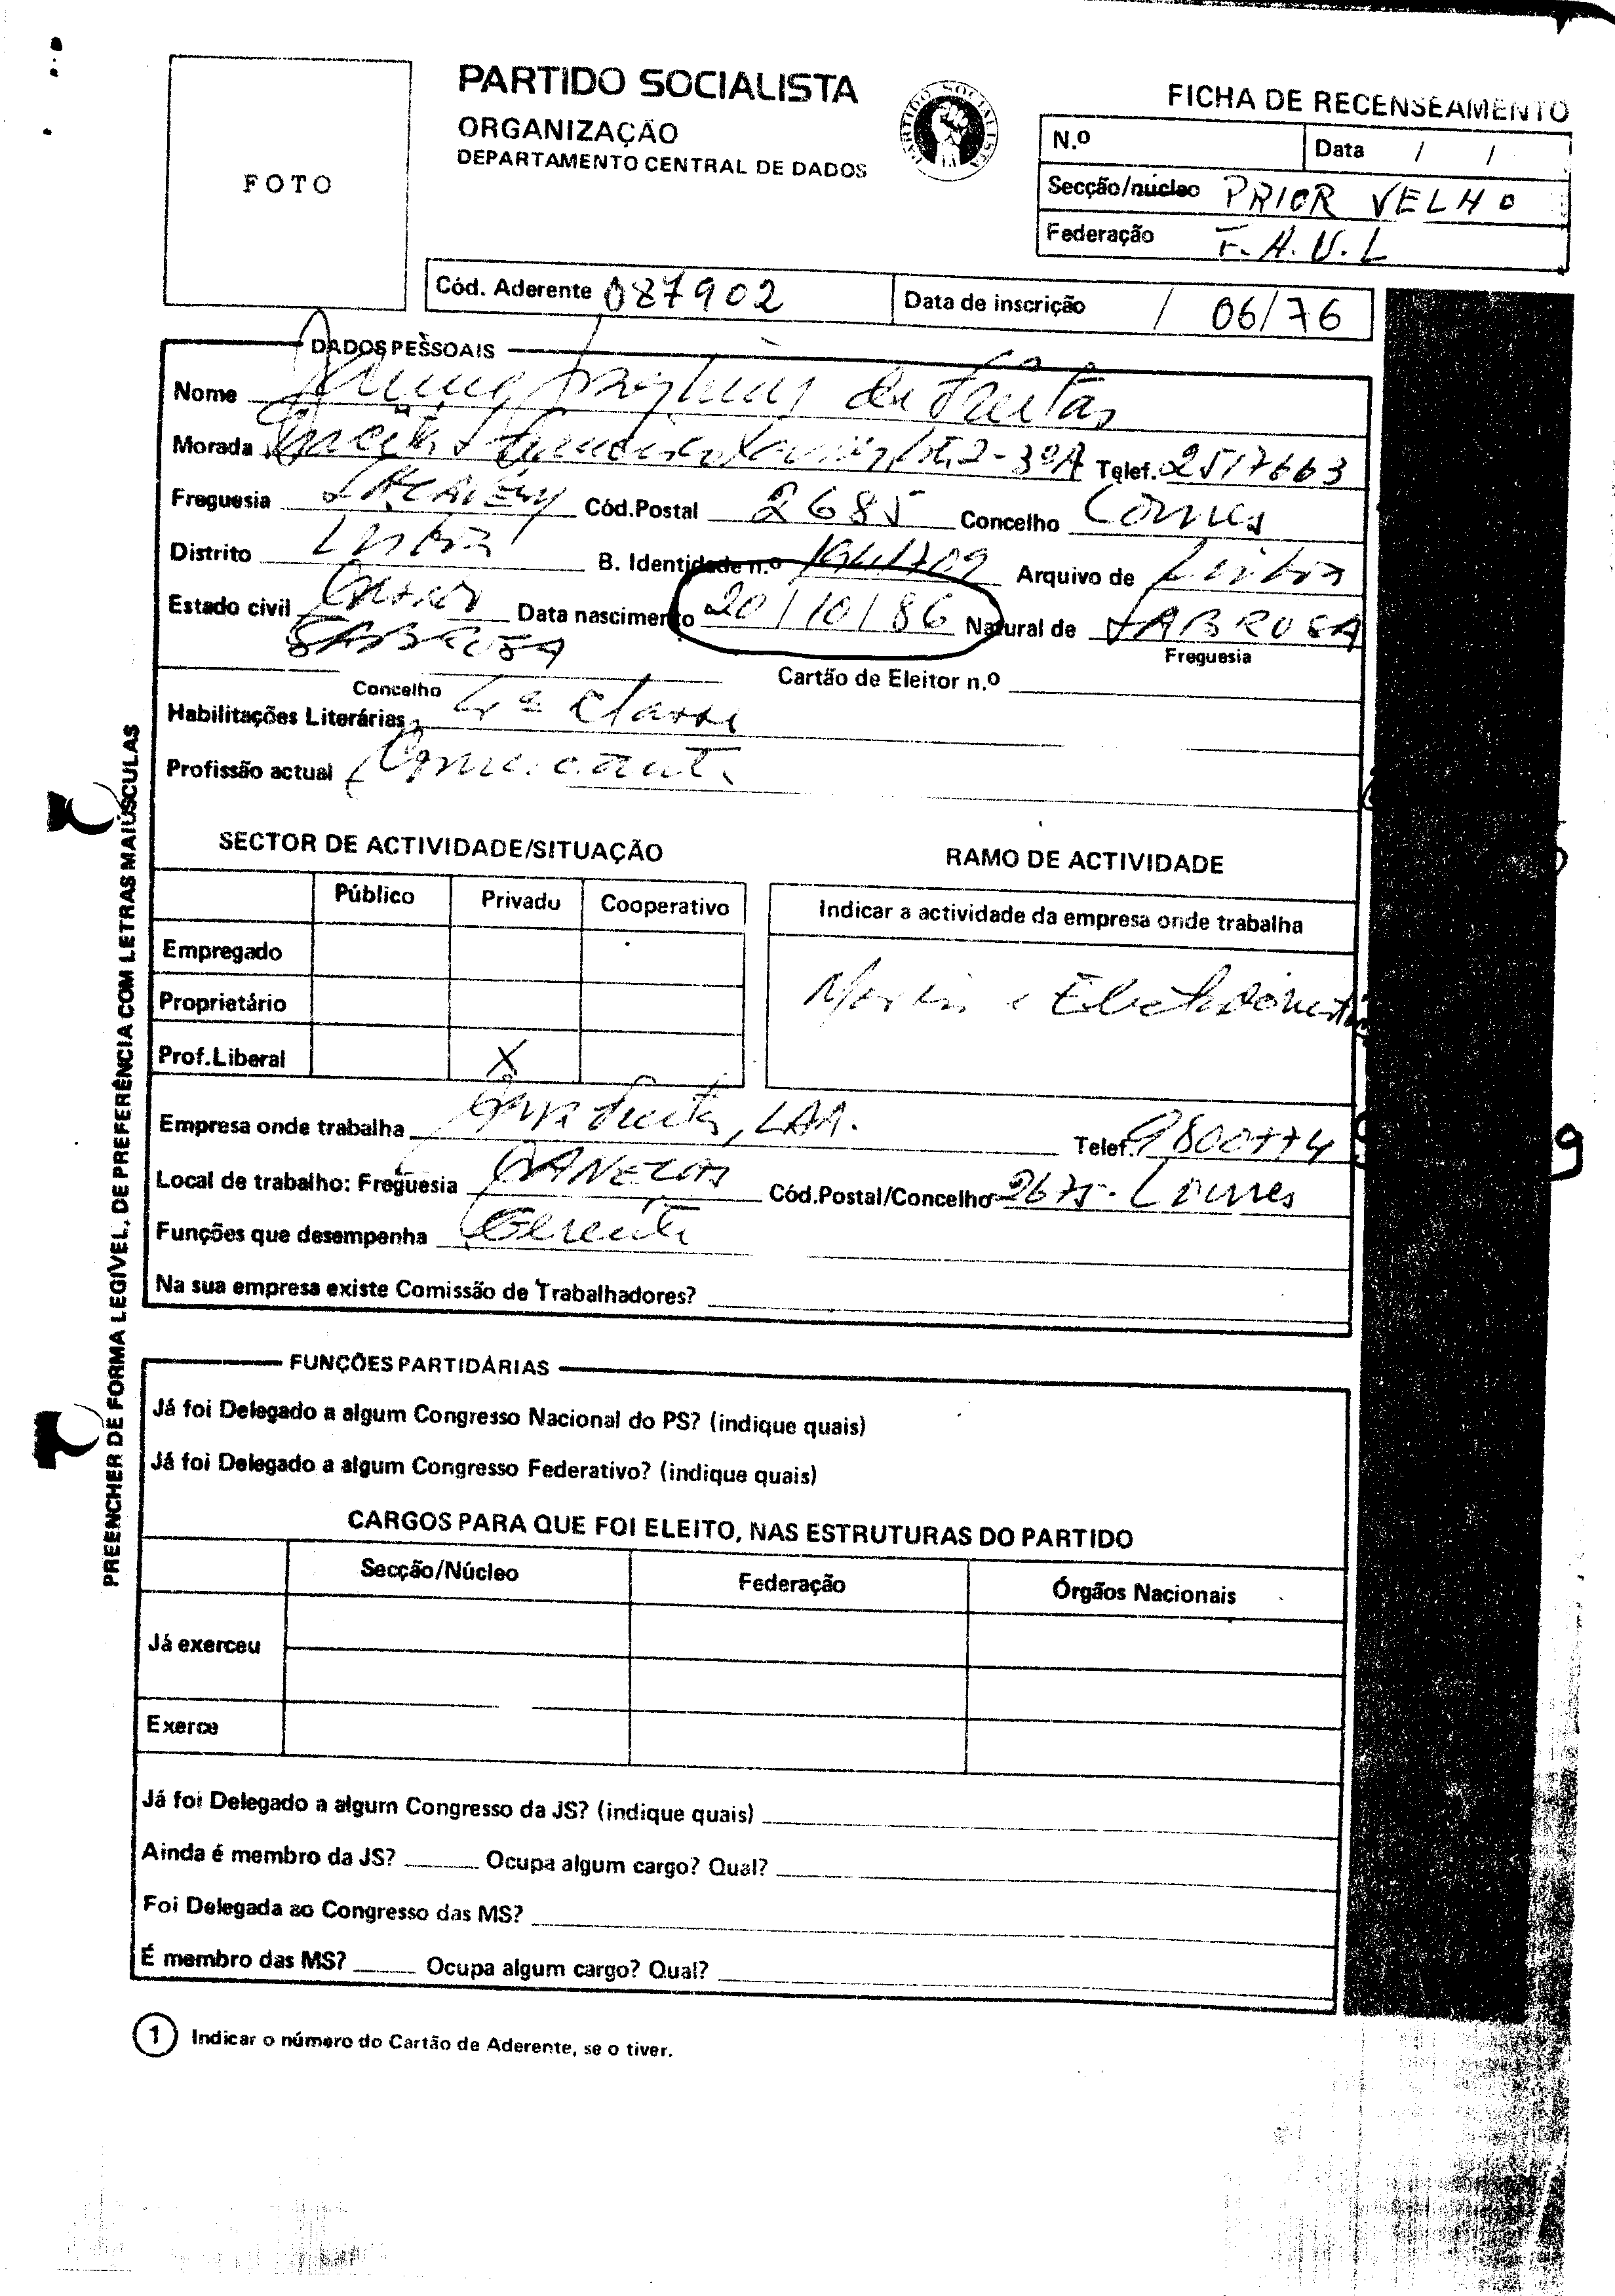 PARTIDO SOCIALISTA
ORGANIZAÇÃO
DEPARTAMENTO CENTRAL DE DADOS
PARTIDO SOCIALISTA
FOTO
FICHA DE RECENSEAMENTO
N.º Data / /
Secção/núcleo PRIOR VELHO
Federação F.A.U.L
Cód. Aderente 087902 Data de inscrição / 06/76
DADOS PESSOAIS
Nome de Freitas
Morada 2-3ºA Telef. 2517663
Freguesia SACAVÉM Cód.Postal 2685 Concelho Loures
Distrito Lisboa B. Identidade n.º Arquivo de Lisboa
Estado civil Casado Data nascimento 20/10/86 Natural de SABROSA
Freguesia
SABROSA
Concelho
Cartão de Eleitor n.º
Habilitações Literárias 4ª classe
Profissão actual Comerciante
SECTOR DE ACTIVIDADE/SITUAÇÃO
Público Privado Cooperativo
Empregado
Proprietário
Prof.Liberal X
RAMO DE ACTIVIDADE
Indicar a actividade da empresa onde trabalha
e
Empresa onde trabalha Telef. 9800774
Local de trabalho: Freguesia CANEÇAS Cód.Postal/Concelho 2675-Loures
Funções que desempenha Gerente
Na sua empresa existe Comissão de Trabalhadores?
FUNÇÕES PARTIDÁRIAS
Já foi Delegado a algum Congresso Nacional do PS? (indique quais)
Já foi Delegado a algum Congresso Federativo? (indique quais)
CARGOS PARA QUE FOI ELEITO, NAS ESTRUTURAS DO PARTIDO
Secção/Núcleo Federação Órgãos Nacionais
Já exerceu
Exerce
Já foi Delegado a algum Congresso da JS? (indique quais)
Ainda é membro da JS? Ocupa algum cargo? Qual?
Foi Delegada ao Congresso das MS?
É membro das MS? Ocupa algum cargo? Qual?
1 Indicar o número do Cartão de Aderente, se o tiver.
PREENCHER DE FORMA LEGÍVEL, DE PREFERÊNCIA COM LETRAS MAIÚSCULAS
9